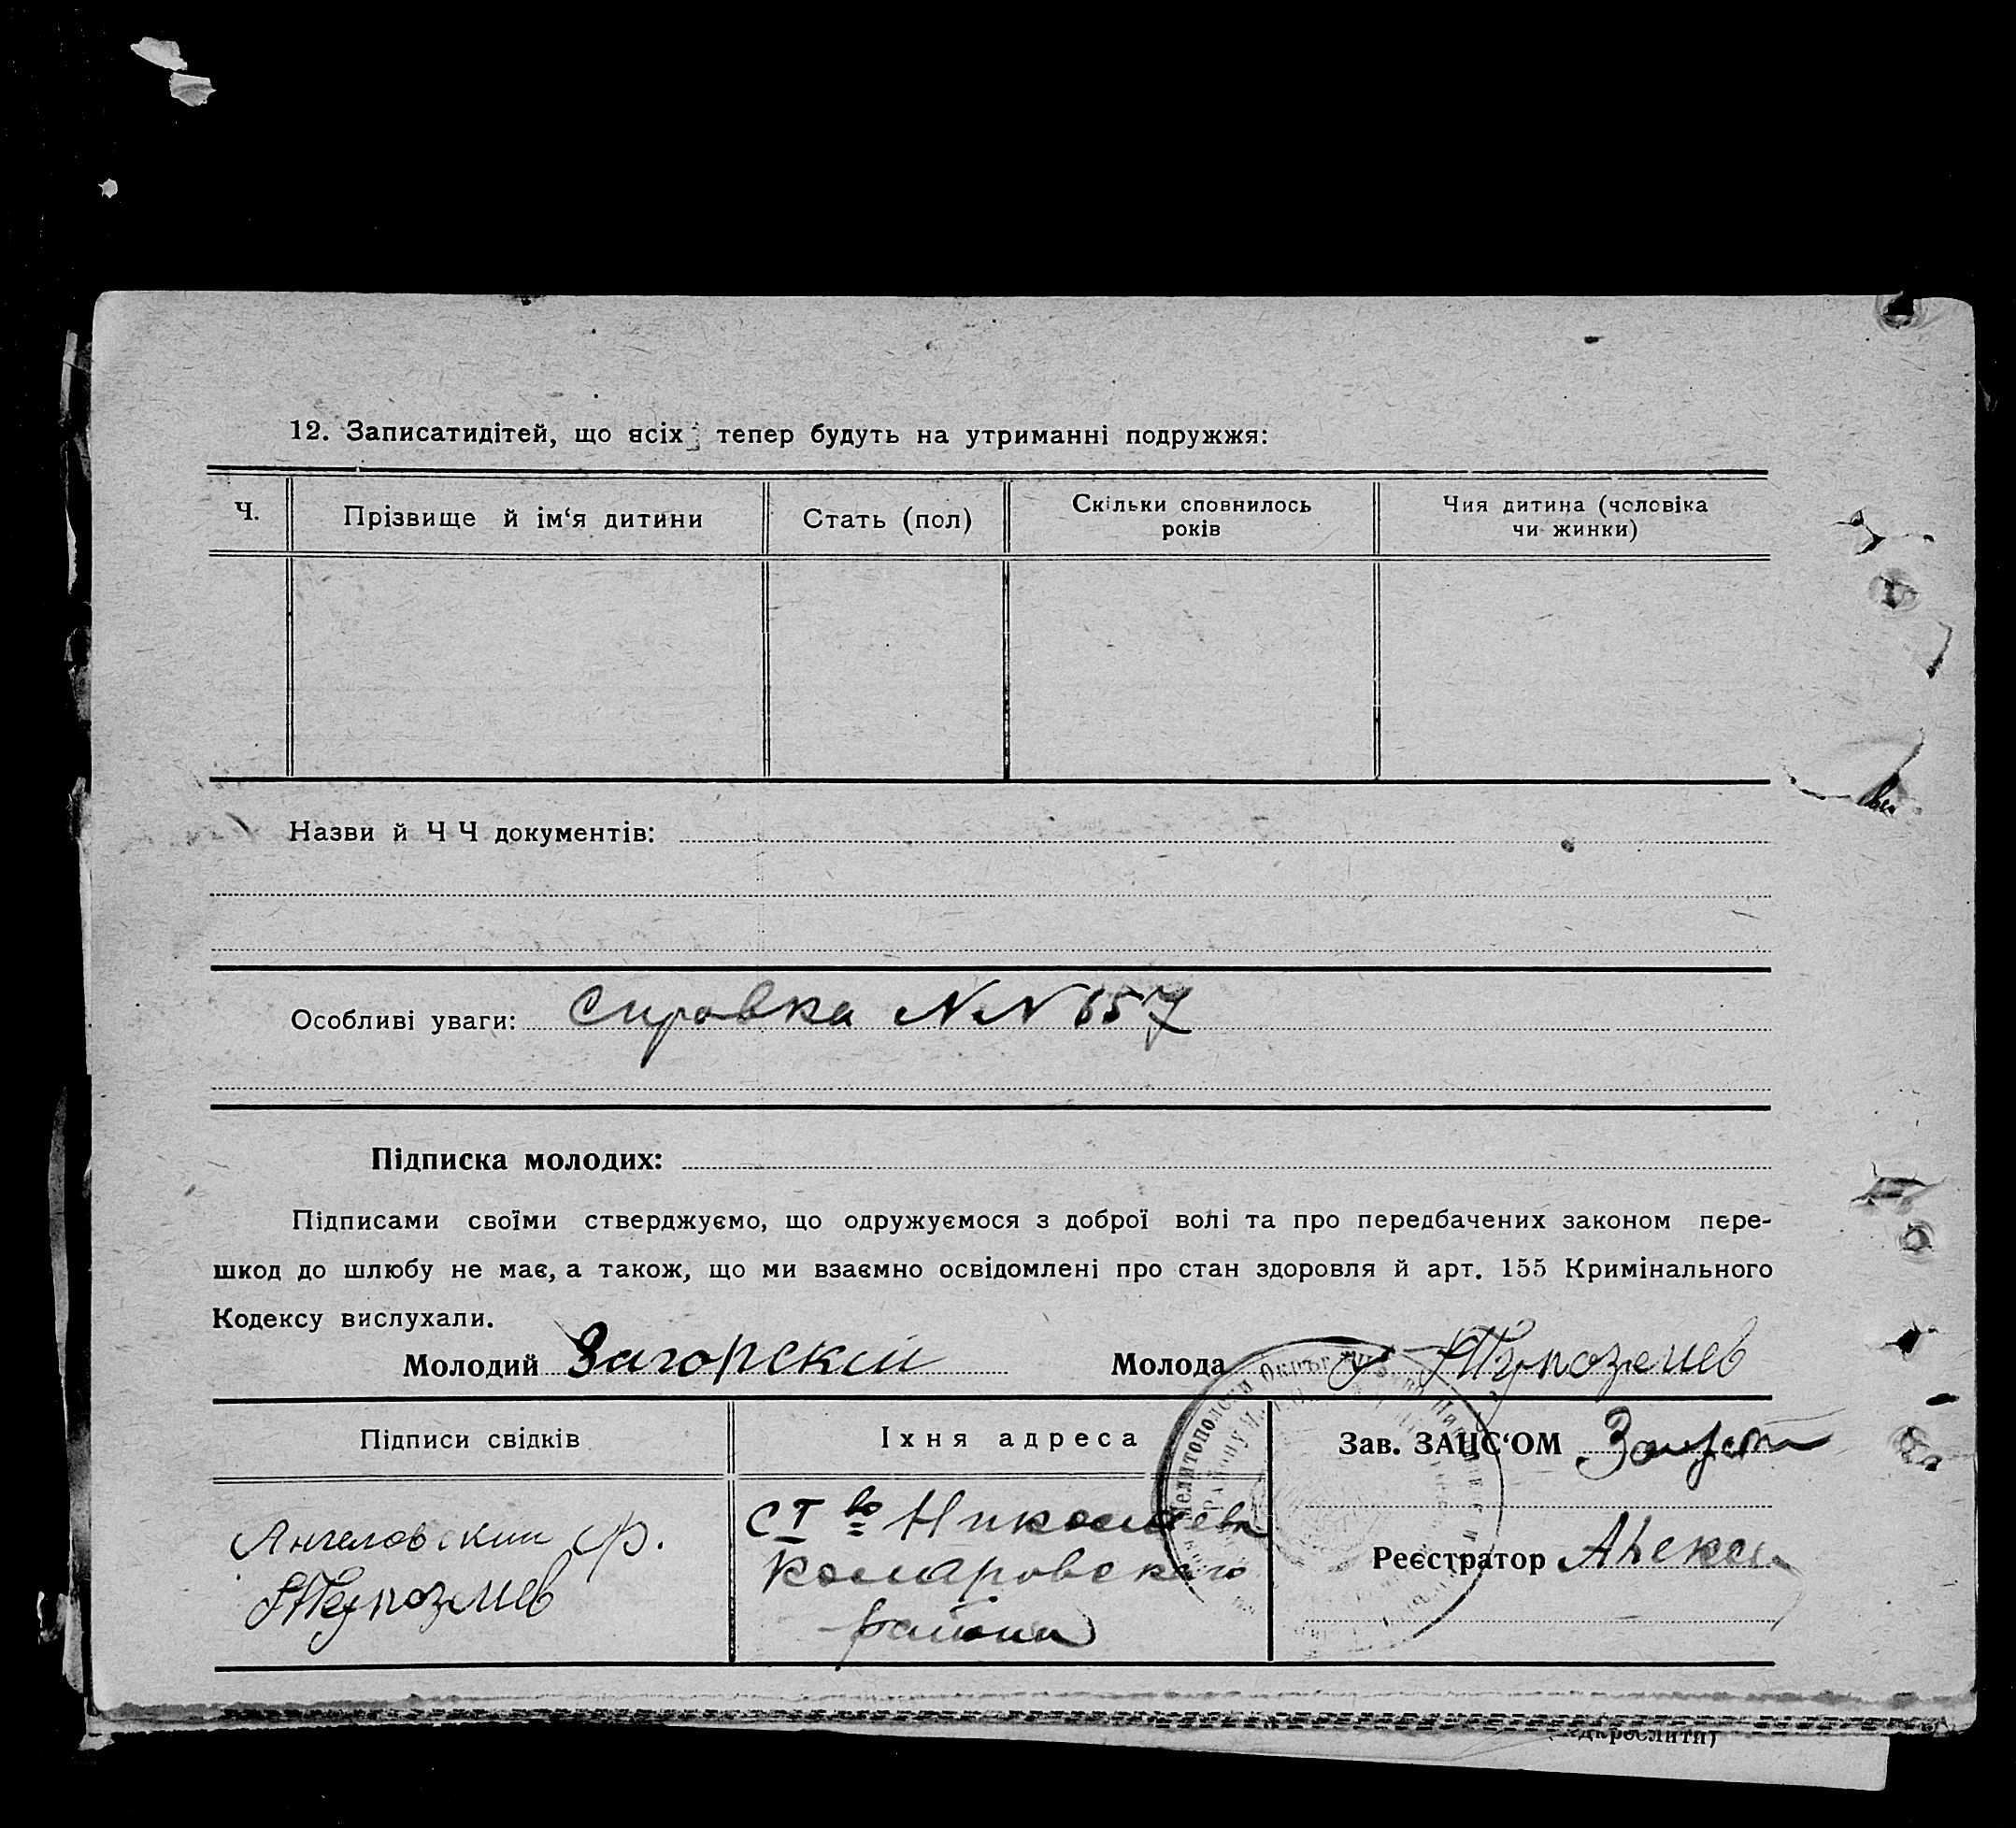 12. Записатидітей, що всіх тепер будуть на утриманні подружжя:
Ч.
Прізвище й ім‘я дитини
Стать (пол)
Скільки сповнилось
років
Чия дитина (чоловіка
чи жинки)
Назви й Ч Ч документів:
Особливі уваги: Справка NN 657
Підписка молодих:
Підписами своїми стверджуємо, що одружуємося з доброї волі та про передбачених законом пере-
шкод до шлюбу не має, а також, що ми взаємно освідомлені про стан здоровля й арт. 155 Кримінального
Кодексу вислухали.
Молодий Загорскій
Молода
Підписи свідків
Їхня адреса
Зав. ЗАЦС‘ОМ
Ангеловский Ф.
ст во Николаевка
Комаровского
района
Реєстратор Алекси
(підкреслити)